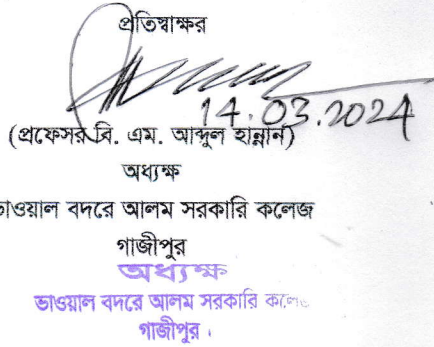 প্রতিস্বাক্ষর
14.03.2024
(প্রফেসর বি. এম. আব্দুল হান্নান)
অধ্যক্ষ
ভাওয়াল বদরে আলম সরকারি কলেজ
গাজীপুর
অধ্যক্ষ
ভাওয়াল বদরে আলম সরকারি কলেজ
গাজীপুর।